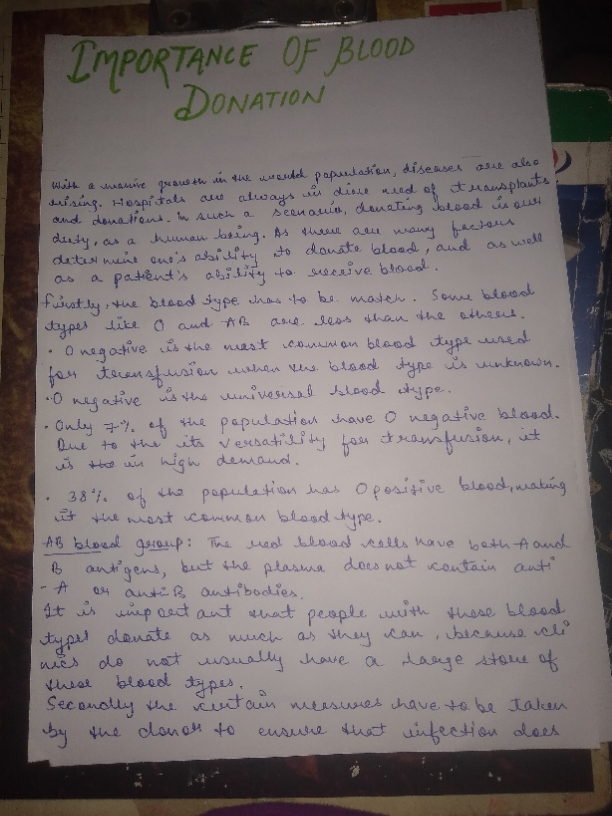 IMPORTANCE OF BLOOD
DONATION
With a massive growth in the world population, diseases are also
rising. Hospitals are always in dire need of transplants
and donations. In such a scenario, donating blood is our
duty, as a human being. As there are many factors
determine one's ability to donate blood, and as well
as a patient's ability to receive blood.
Firstly, the blood type has to be match. Some blood
types like O and AB are less than the others.
· O negative is the most common blood type used
for transfusion when the blood type is unknown.
· O negative is the universal blood type.
· Only 7% of the population have O negative blood.
Due to the its versatility for transfusion, it
is the in high demand.
· 38% of the population has O positive blood, making
it the most common blood type.
AB blood group: The red blood cells have both A and
B antigens, but the plasma does not contain anti
- A or anti B antibodies.
It is important that people with these blood
types donate as much as they can, because cli
nics do not usually have a large store of
these blood types.
Secondly the certain measures have to be taken
by the donor to ensure that infection does